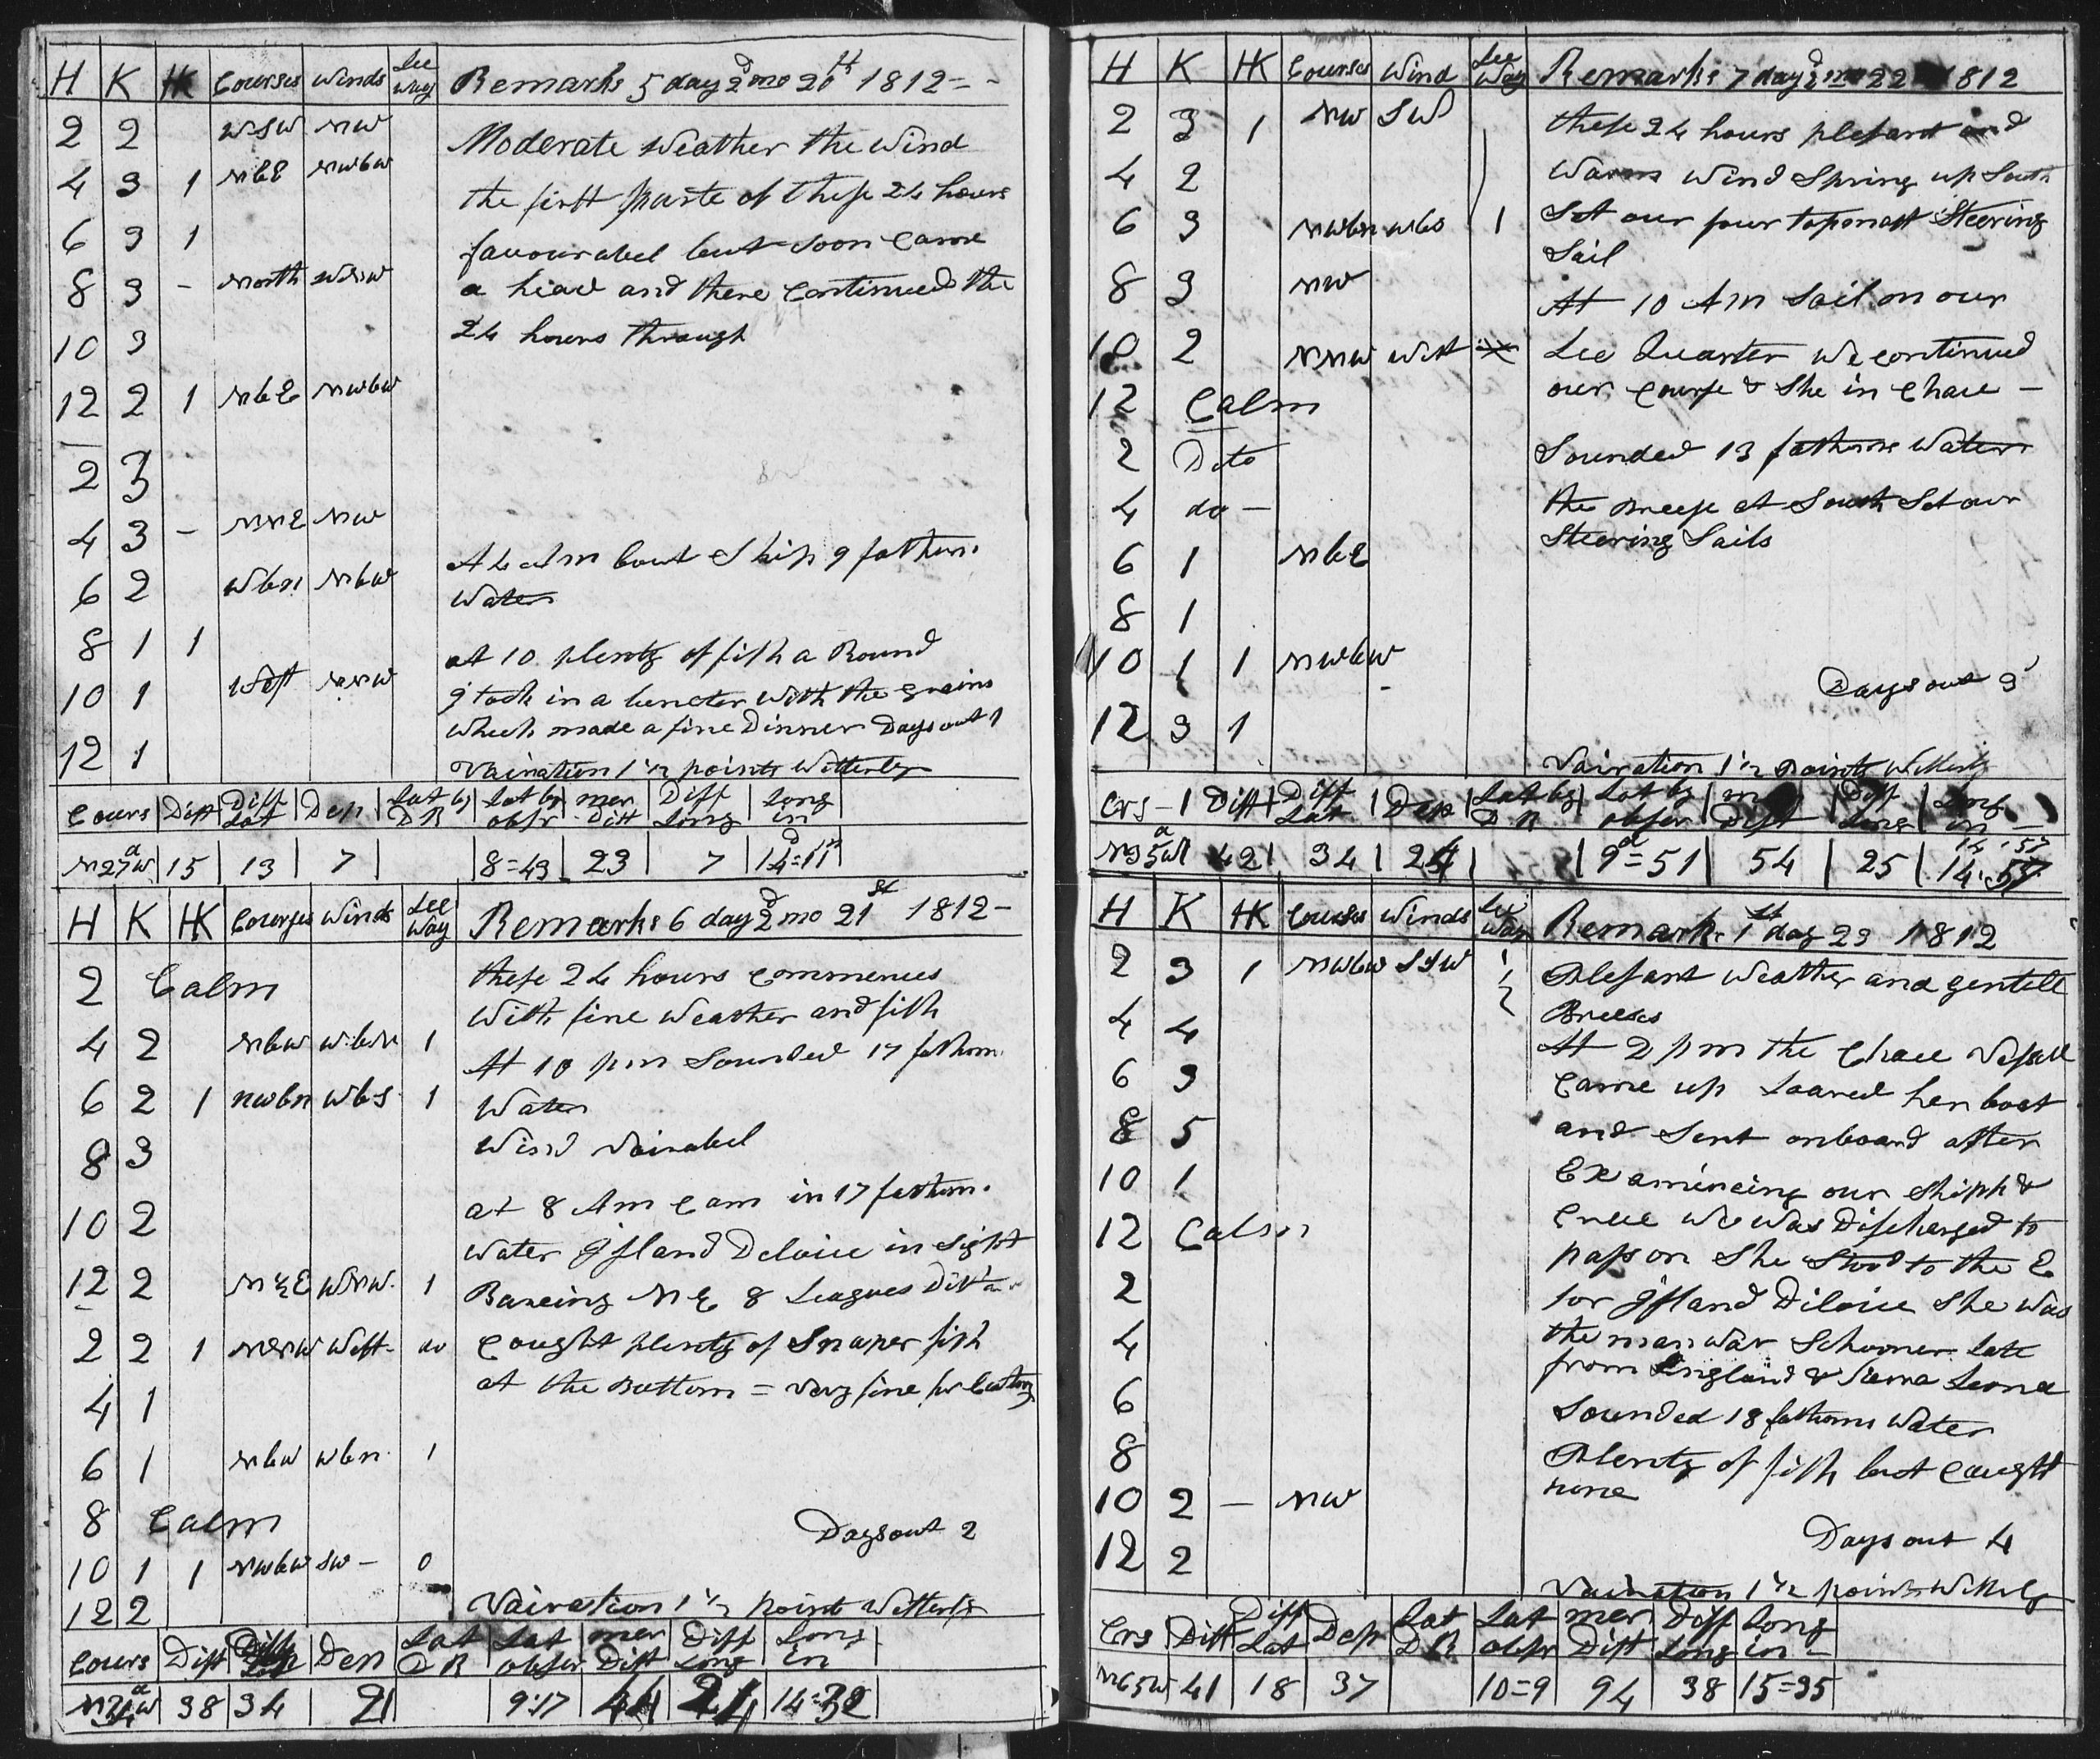 H K HK Courses Winds Lee Way Remarks 5 day 2d mo 20th 1812 - -
2 2 WSW NW Moderate Weather the Wind
4 3 1 NbE NWbW the first parte of these 24 hours
6 3 1 favourabel but Soon Came
8 3 - North WNW a head and there Continued the
10 3 24 hours through
12 2 1 NbE NWbW
2 3
4 3 - NNE NW
6 2 WbN NbW At 4 Am bout Ship 9 fathom
Water
8 1 1 at 10 plenty of fish a Round
10 1 West NNW I took in a with the grains
which made a fine Dinner Days out 1
12 1 Vairation 1 1/2 points Westerly
Cours Dist Diff Lat Dep Lat by DR Lat by obsr mer Dist Diff Long Long in
N27dW 15 13 7 8=43 23 7 14d=11m
H K HK Courses Winds Lee Way Remarks 6 day 2d mo 21st 1812 -
2 Calm these 24 hours Commences
With fine Weather and fish
4 2 NbW WbN 1 At 10 pm Sounded 17 fathom
6 2 1 NWbN WbS 1 Water
8 3 Wind Vairabel
10 2 at 8 Am Cam in 17 fathom
Water Island Deloice in Sight
12 2 WNW 1 Bareing NE 8 Leagues Distan
2 2 1 NNW West do Cought plenty of Snaper fish
4 1 at the Bottom = very fine for Eating
6 1 NbW WbN 1
8 Calm Days out 2
10 1 1 NWbW SW - 0
12 2 Vairation 1 1/2 points Westerly
Cours Dist Diff Lat Dep Lat DR Lat obser mer Dist Diff Long Long in
dW 38 34 21 9:17 44 21 14=32
H K HK Courses Wind Lee Way Remarks 7 day 2d mo 22 1812
2 3 1 NW SW these 24 hours plesant and
4 2 Warm Wind Spring up South
6 3 NWbN WbS 1 Set our four topmast Steering
Sail
8 3 NW At 10 Am Sail on our
10 2 NNW West Lee Quarter We Continued
12 Calm our Course & She in Chace -
2 Dito Sounded 13 fathoms Water
4 do - the Breese at South Set our
6 1 NbE Steering Sails
8 1
10 1 1 NWbW Days out 3
12 3 1
Vairation 1 1/2 points Westerly
Crs - Dist Diff Lat Dep Lat by DR Lat by obser Dist Diff Long Long in
N35dW 42 34 24 9d=51 54 25 14:57
H K HK Courses Winds Lee Way Remark 1st day 23 1812
2 3 1 NWbW SSW Plesant Weather and gentele
4 4 Breeses
At 2 pm the Chace Vessele
6 3 Came up Loared her boat
8 5 and Sent onboard after
10 1 Examineing our Shiph &
12 Calm Crue We Was Discharged to
pass on She Stood to the E
2 for Island Diloice She was
4 the man war Schooner late
from England & Siena Leona
6 Sounded 18 fathoms Water
8 Plenty of fish but Caught
10 2 - NW none
12 2 Days out 4
Vairation 1 1/2 points Westerly
Crs Dist Diff Lat Dep Lat DR Lat obsr mer Dist Diff Long Long in -
N65W 41 18 37 10=9 94 38 15=35